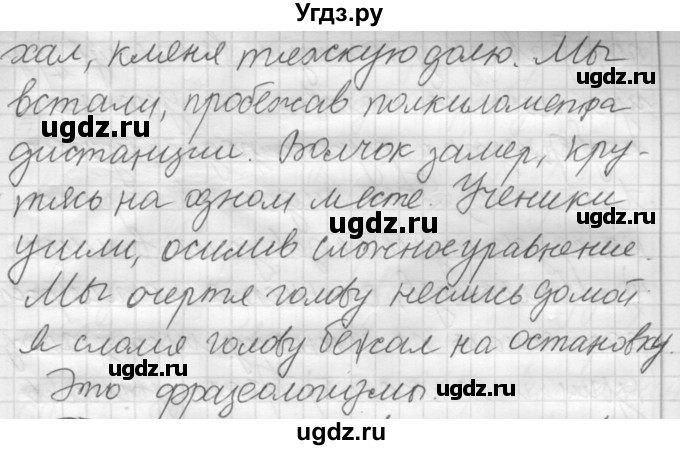 Угдз.ру
хал, кляня тяжскую долю. Мы
ugdz.ru
встали, пробежав полкилометра
ugdz.ru
ugdz.ru
дистанции. Волчок замер, кру-
ugdz.ru
тясь на одном месте. Ученики
ugdz.ru
ушли, осилив сложное уравнение.
Мы очертя голову неслись домой.
ugdz.ru
ugdz.ru
Я сломя голову бежал на остановку.
Это фразеологизмы.
ugdz.ru
ugdz.ru